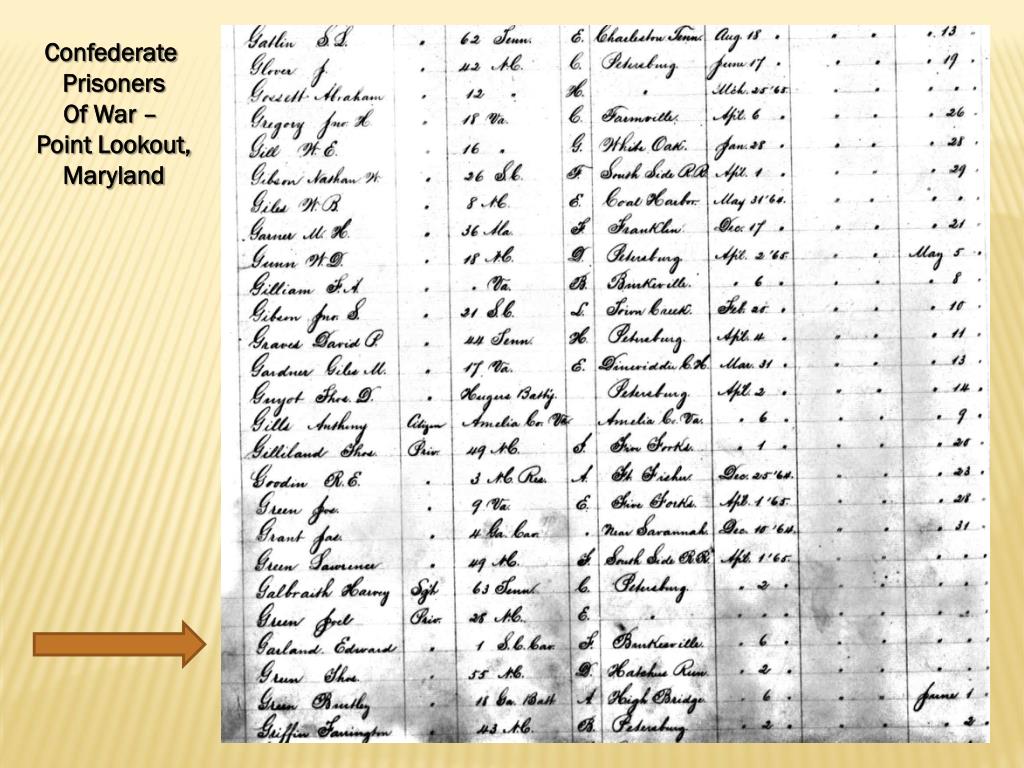 Confederate
Prisoners
Of War –
Point Lookout,
Maryland
Gatlin S.L. " 62 Tenn. E. Charleston Tenn. Aug. 18 " " " " 13 "
Glover J. " 42 N.C. C. Petersburg. June 17 " " " " 19 "
Gossett Abraham " 12 " H. " Mch. 25 '65. " " " " "
Gregory Jno. H. " 18 Va. C. Farmville. Apl. 6 " " " " 26 "
Gill W. E. " 16 " G. White Oak. Jan. 28 " " " " 28 "
Gibson Nathan W. " 26 S.C. F. South Side R.R. Apl. 1 " " " " 29 "
Giles W. B. " 8 N.C. E. Coal Harbor. May 31 '64. " " " " "
Garner M. H. " 36 Ala. F. Franklin. Dec. 17 " " " " 21 "
Gunn W. D. " 18 N.C. D. Petersburg. Apl. 2 '65. " " May 5 "
Gilliam F. A. " " Va. B. Burkeville. " 6 " " " " 8 "
Gibson Jno. S. " 21 S.C. L. Town Creek. Feb. 20 " " " " 10 "
Graves David P. " 44 Tenn. H. Petersburg. Apl. 4 " " " " 11 "
Gardner Giles M. " 17 Va. E. Dinwiddie C.H. Mar. 31 " " " " 13 "
Guyot Thos. D. " Hugers Batty. Petersburg. Apl. 2 " " " " 14 "
Gills Anthony Citizen Amelia Co. Va. Amelia Co. Va. " 6 " " " " 9 "
Gilliland Thos. Priv. 49 N.C. I. Five Forks. " 1 " " " " 20 "
Goodin R. E. " 3 N.C. Res. A. Ft. Fisher. Dec. 25 '64. " " " 23 "
Green Jos. " 9 Va. E. Five Forks. Apl. 1 '65. " " " 28 "
Grant Jas. " 4 Ga. Cav. " Near Savannah. Dec. 10 '64. " " " 31 "
Green Lawrence " 49 N.C. I. South Side R.R. Apl. 1 '65. " " " " "
Galbraith Harvey Sgt. 63 Tenn. C. Petersburg. " 2 " " " " " "
Green Joel Priv. 28 N.C. E. " " " " " " " " "
Garland Edward " 1 S.C. Cav. F. Burkesville. " 6 " " " " " "
Green Thos. " 55 N.C. D. Hatchers Run. " 2 " " " " " "
Green Bentley " 18 Ga. Batt A High Bridge. " 6 " " " June 1 "
Griffin Farrington " 43 N.C. B. Petersburg. " 2 " " " " 2 "